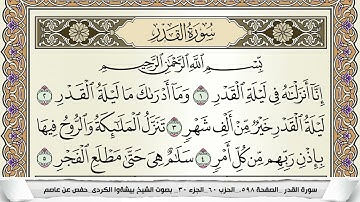 سُورَةُ الْقَدْرِ
بِسْمِ اللَّهِ الرَّحْمَٰنِ الرَّحِيمِ
إِنَّا أَنزَلْنَاهُ فِي لَيْلَةِ الْقَدْرِ ١ وَمَا أَدْرَاكَ مَا لَيْلَةُ الْقَدْرِ ٢
لَيْلَةُ الْقَدْرِ خَيْرٌ مِّنْ أَلْفِ شَهْرٍ ٣ تَنَزَّلُ الْمَلَائِكَةُ وَالرُّوحُ فِيهَا
بِإِذْنِ رَبِّهِم مِّن كُلِّ أَمْرٍ ٤ سَلَامٌ هِيَ حَتَّىٰ مَطْلَعِ الْفَجْرِ ٥
سورة القدر _الصفحة ٥٩٨_ الحزب ٦٠_ الجزء ٣٠_ بصوت الشيخ بيشةوا الكردى_ حفص عن عاصم